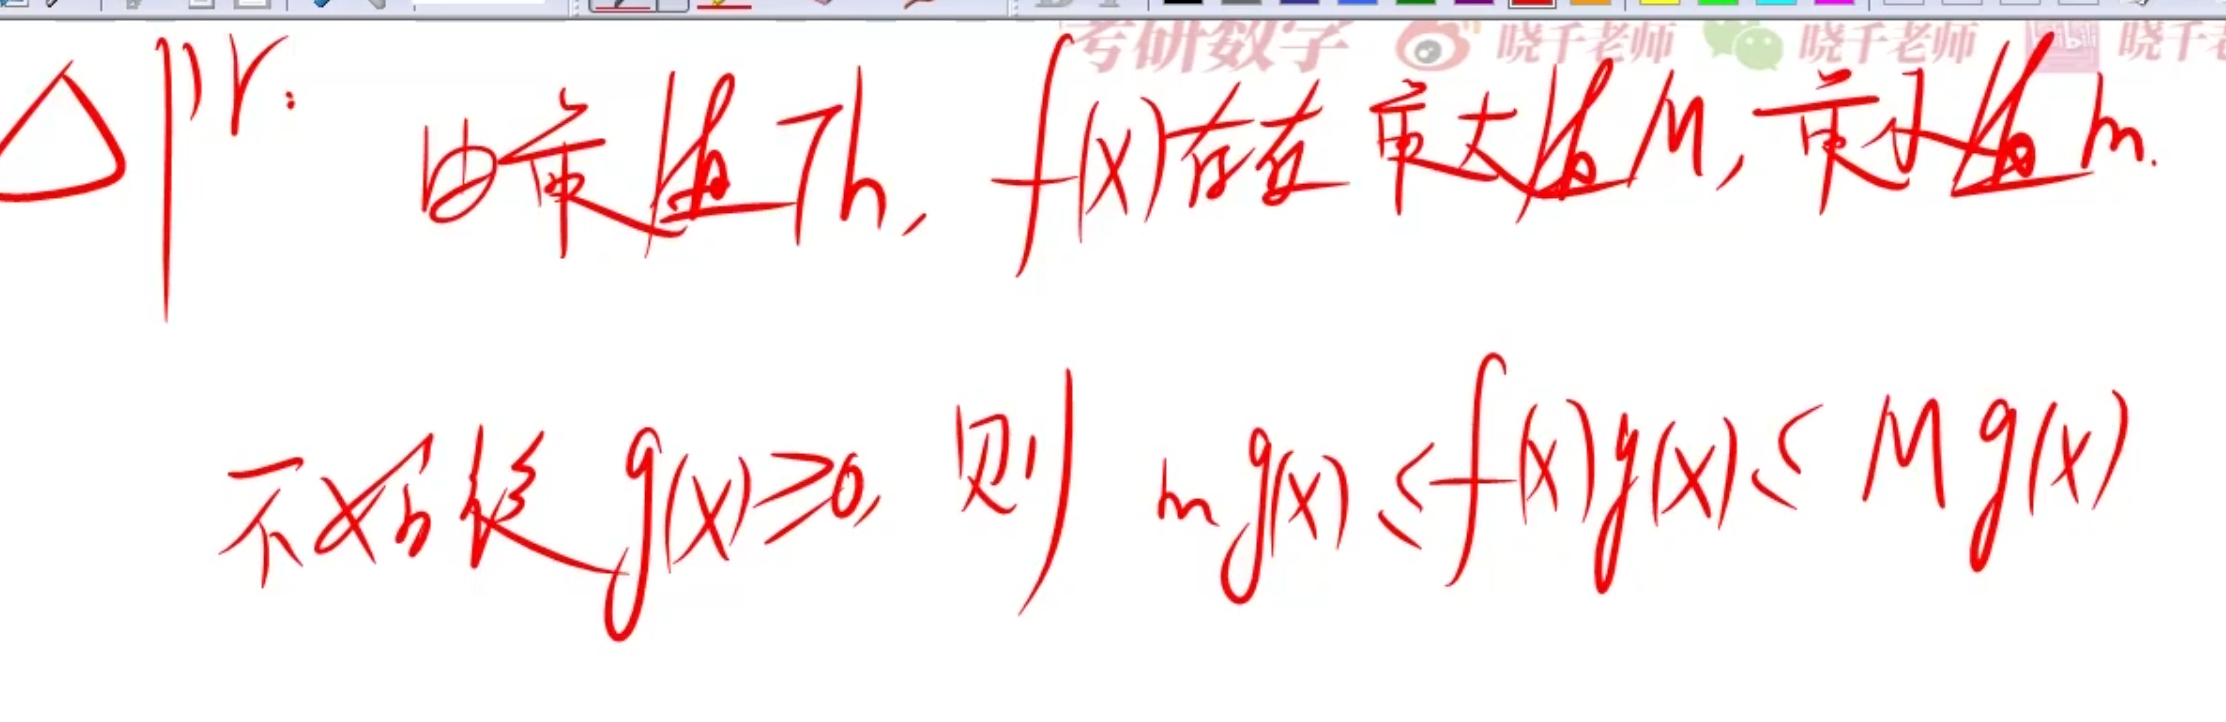 考研数学 晓千老师 晓千老师 晓千老
△ pr: 由最值Th, f(x)存在最大值M, 最小值m.
不妨设 g(x)≥0, 则 mg(x)≤f(x)g(x)≤Mg(x)